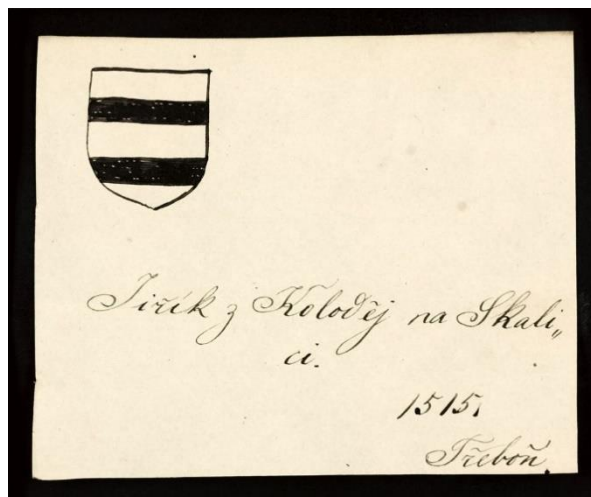 Jiřík z Koloděj na Skali„
ci.
1515.
Třeboň.